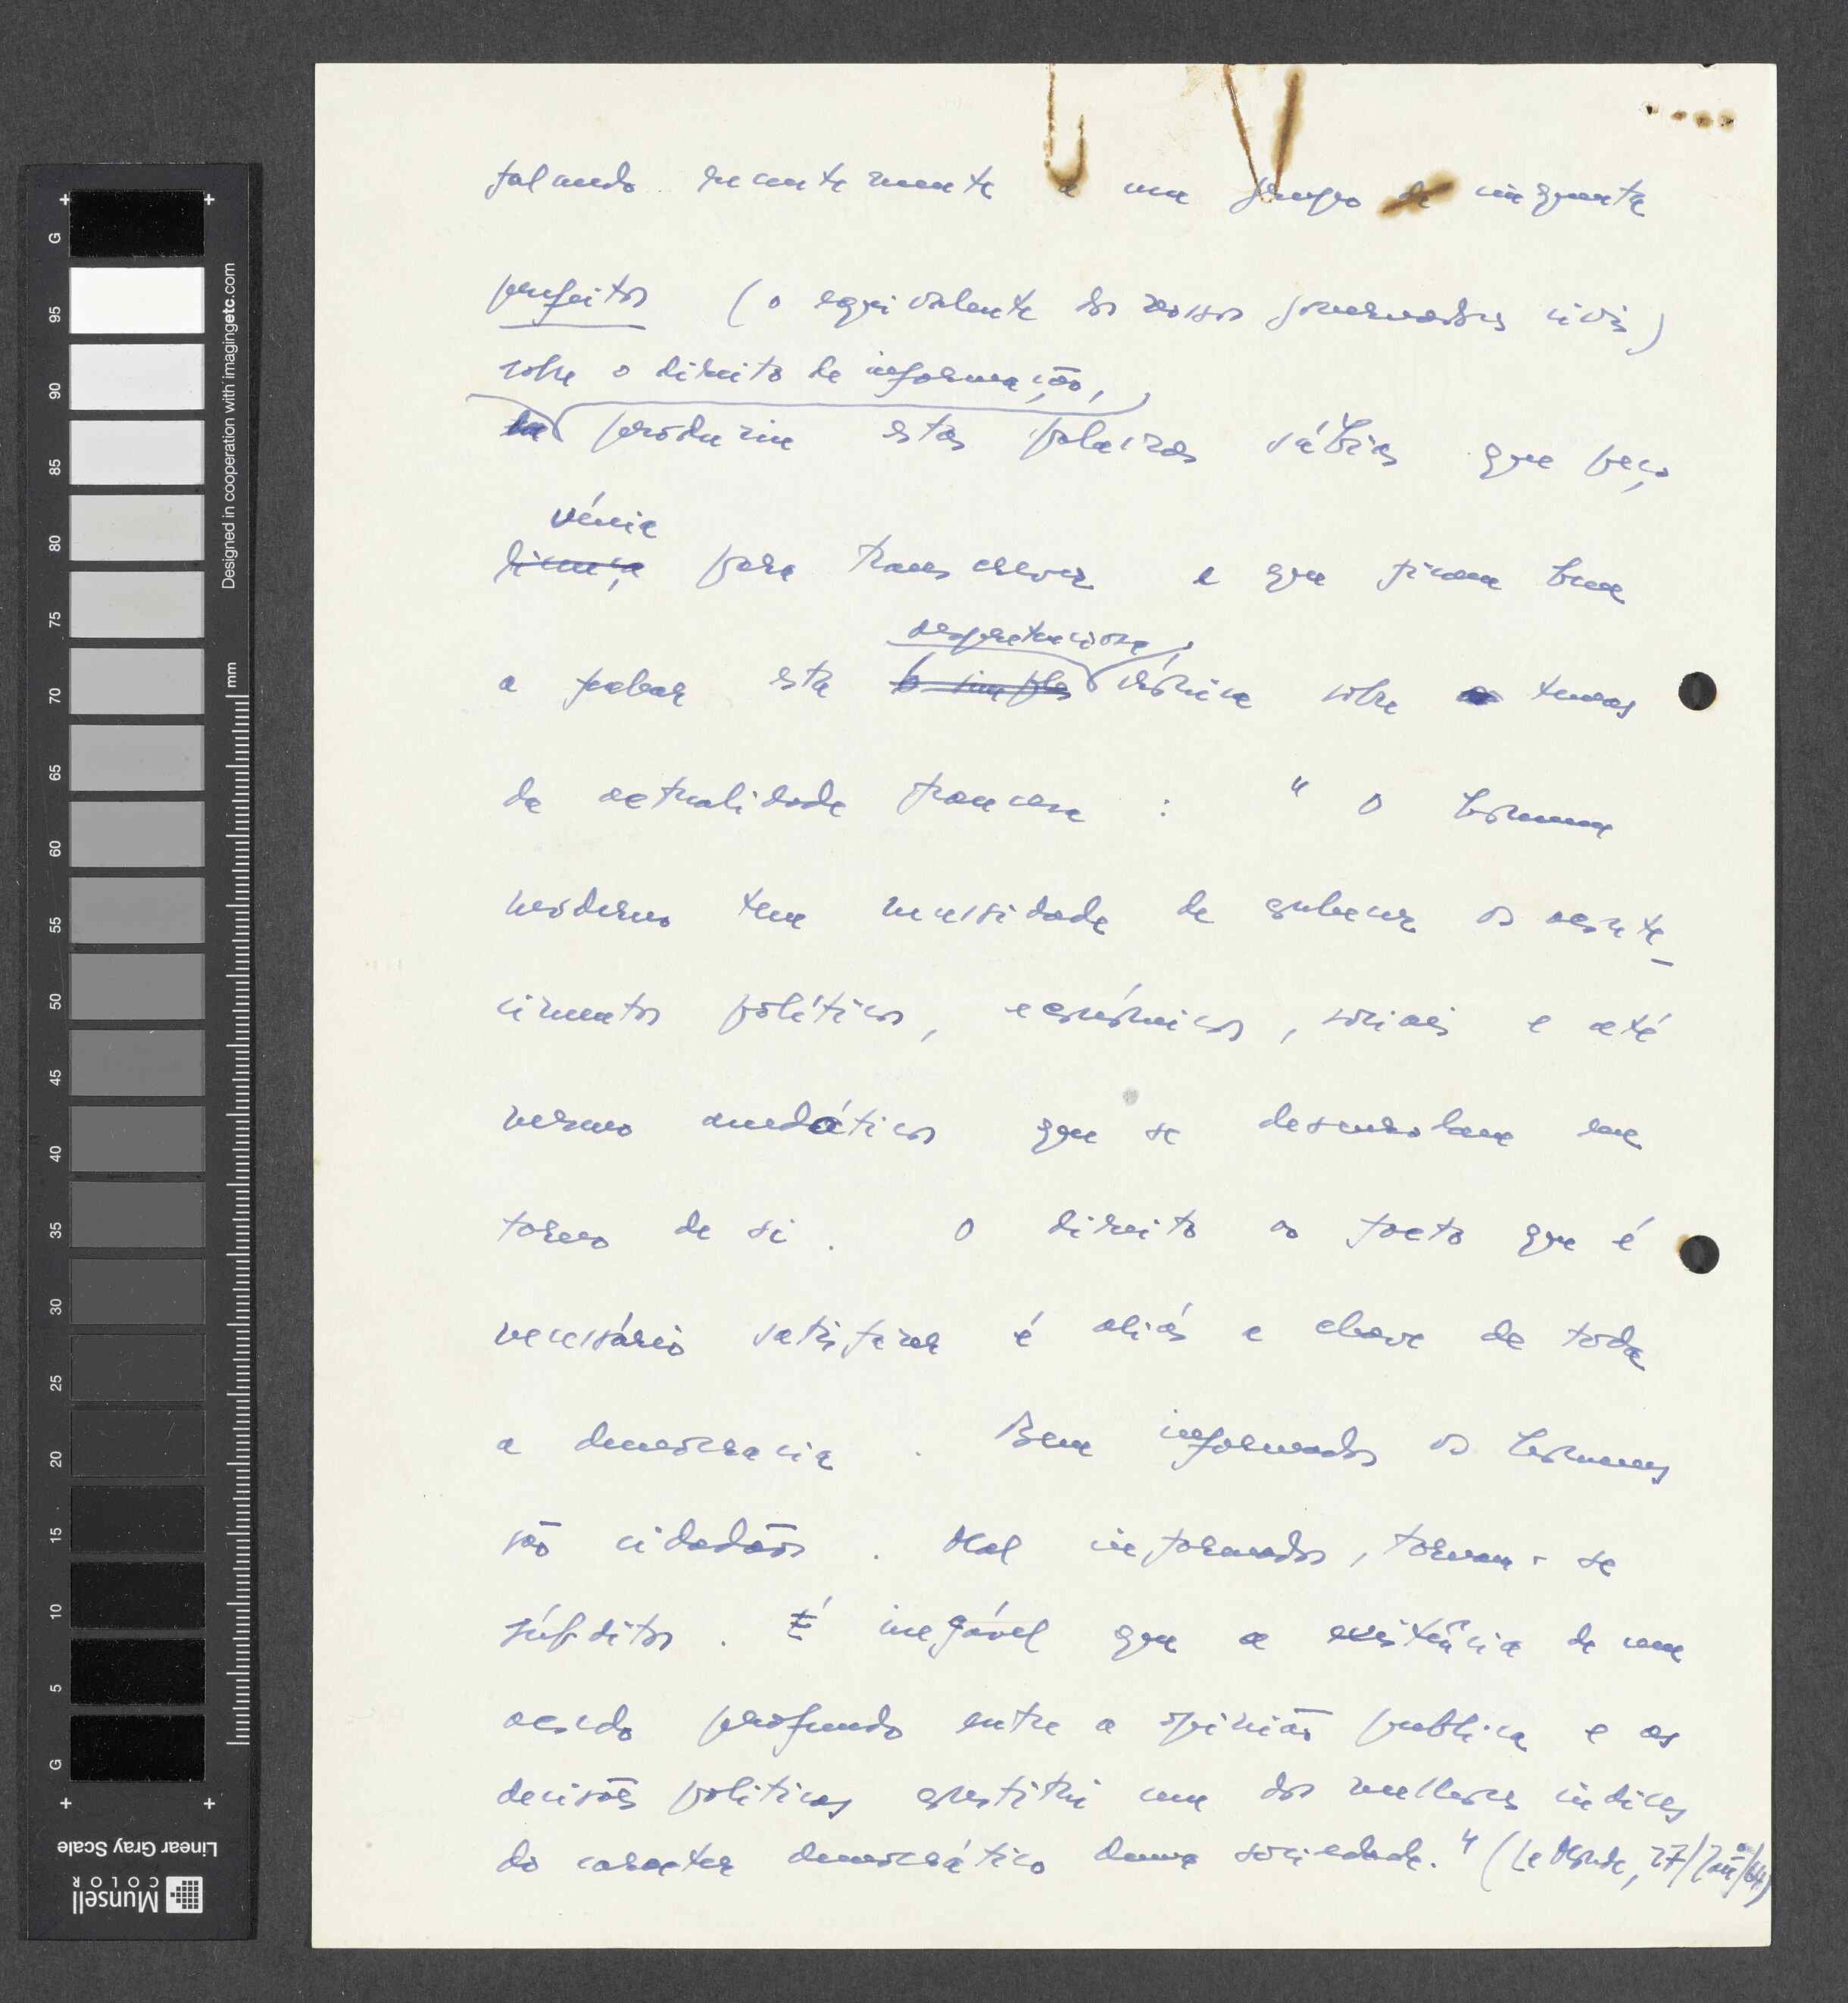 falando recentemente a um grupo de cinquenta
prefeitos (o equivalente dos nossos governadores civis)
sobre o direito de informação,
produziu estas palavras sábias que peço
vénia
licença para transcrever e que ficam bem
a fechar esta despretenciosa crónica sobre temas
da actualidade francesa : " O homem
moderno tem necessidade de conhecer os aconte-
cimentos políticos, económicos, sociais e até
mesmo anedóticos que se desenrolam em
torno de si . O direito ao facto que é
necessário satisfazer é aliás a chave de toda
a democracia . Bem informados os homens
são cidadãos . Mal informados, tornam-se
súbditos . É inegável que a existência de um
acordo profundo entre a opinião publica e as
decisões politicas constitui um dos melhores indices
do caracter democrático duma sociedade." (Le Monde, 27/Jan/64)
G 95 90 85 80 75 70 65 60 55 50 45 40 35 30 25 20 15 10 5 G
mm
Designed in cooperation with imagingetc.com
Linear Gray Scale
Munsell
COLOR